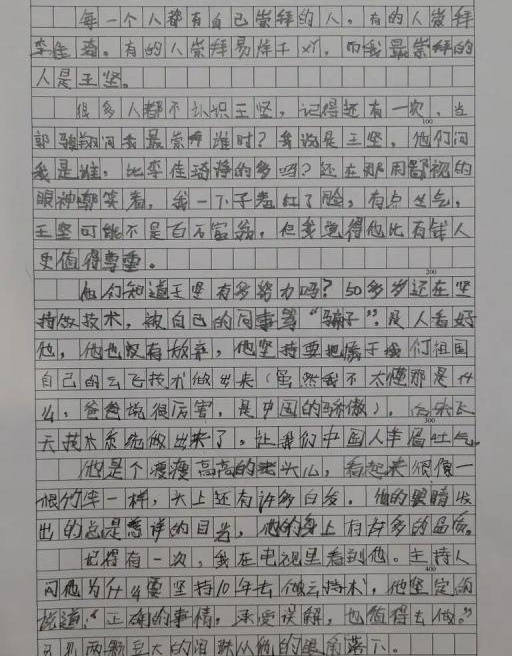 每一个人都有自己崇拜的人。有的人崇拜
李佳琦。有的人崇拜易烊千玺。而我最崇拜的
人是王坚。
很多人都不认识王坚，记得还有一次，当
100
郭骏翔问我最崇拜谁时？我说是王坚，他们问
我是谁，比李佳琦挣的多吗？还在那用鄙视的
眼神嘲笑着，我一下子羞红了脸，有点生气，
王坚可能不是百万富翁，但我觉得他比有钱人
更值得尊重。
200
他们知道王坚有多努力吗？50多岁还在坚
持做技术，被自己的同事骂“骗子”，没人看好
他，他也没有放弃，他坚持要把属于我们祖国
自己的云飞技术做出来（虽然我不太懂那是什
么，爸爸说很厉害，是中国的骄傲），
300
天技术系统做出来了，让我们中国人扬眉吐气。
他是个瘦瘦高高的老头儿，看起来很像一
根竹竿一样，头上还有许多白发。他的眼睛发
出的总是慈祥的目光，他的身上有许多的品质。
记得有一次，我在电视里看到他。主持人
400
问他为什么要坚持10年去做云技术，他坚定的
说道：“正确的事情，承受误解，也值得去做。”
两颗豆大的泪珠从他的眼角落下。